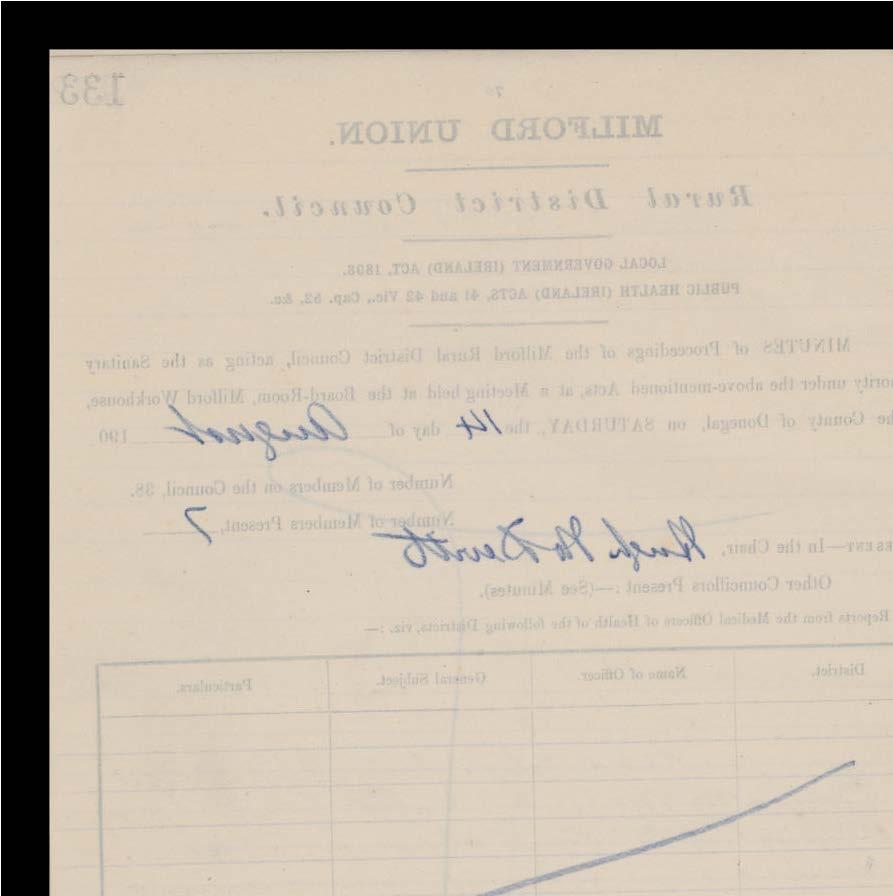 133
MILFORD UNION.
Rural District Council.
LOCAL GOVERNMENT (IRELAND) ACT, 1898.
PUBLIC HEALTH (IRELAND) ACTS, 41 and 42 Vic., Cap. 52, &c.
MINUTES of Proceedings of the Milford Rural District Council, acting as the Sanitary
ority under the above-mentioned Acts, at a Meeting held at the Board-Room, Milford Workhouse,
he County of Donegal, on SATURDAY, the 14 day of August 190
Number of Members on the Council, 38.
Number of Members Present, 7
ESENT—In the Chair, Hugh McDevitt
Other Councillors Present :—(See Minutes).
Reports from the Medical Officers of Health of the following Districts, viz. :—
District. Name of Officer. General Subject. Particulars.